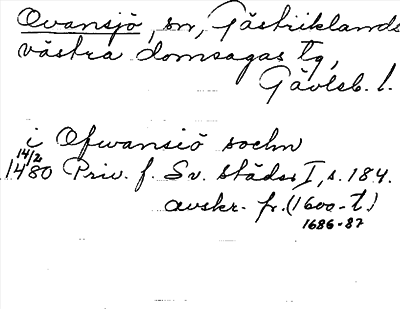 Ovansjö, sn, Gästriklands
västra domsagas tg,
Gävleb. l.
i Ofwansiö sochn
14/2
1480 Priv. f. Sv. städer I, s. 184.
avskr. fr. (1600-t)
1686-87